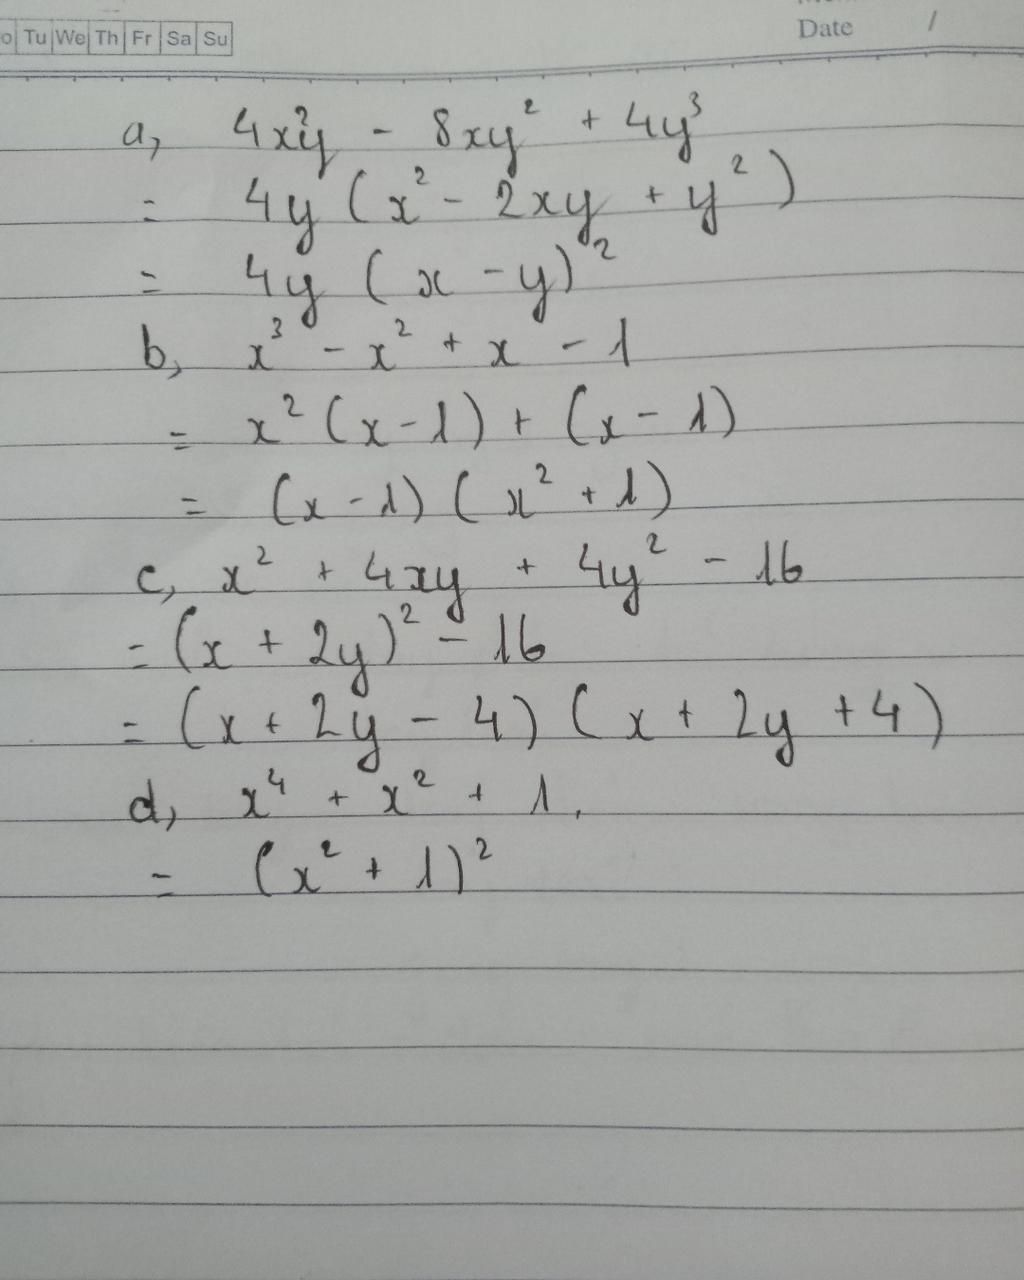 o Tu We Th Fr Sa Su
Date /
a, 4x²y - 8xy² + 4y³
= 4y (x² - 2xy + y²)
= 4y (x - y)²
b, x³ - x² + x - 1
= x² (x - 1) + (x - 1)
= (x - 1) (x² + 1)
c, x² + 4xy + 4y² - 16
= (x + 2y)² - 16
= (x + 2y - 4) (x + 2y + 4)
d, x⁴ + x² + 1.
= (x² + 1)²